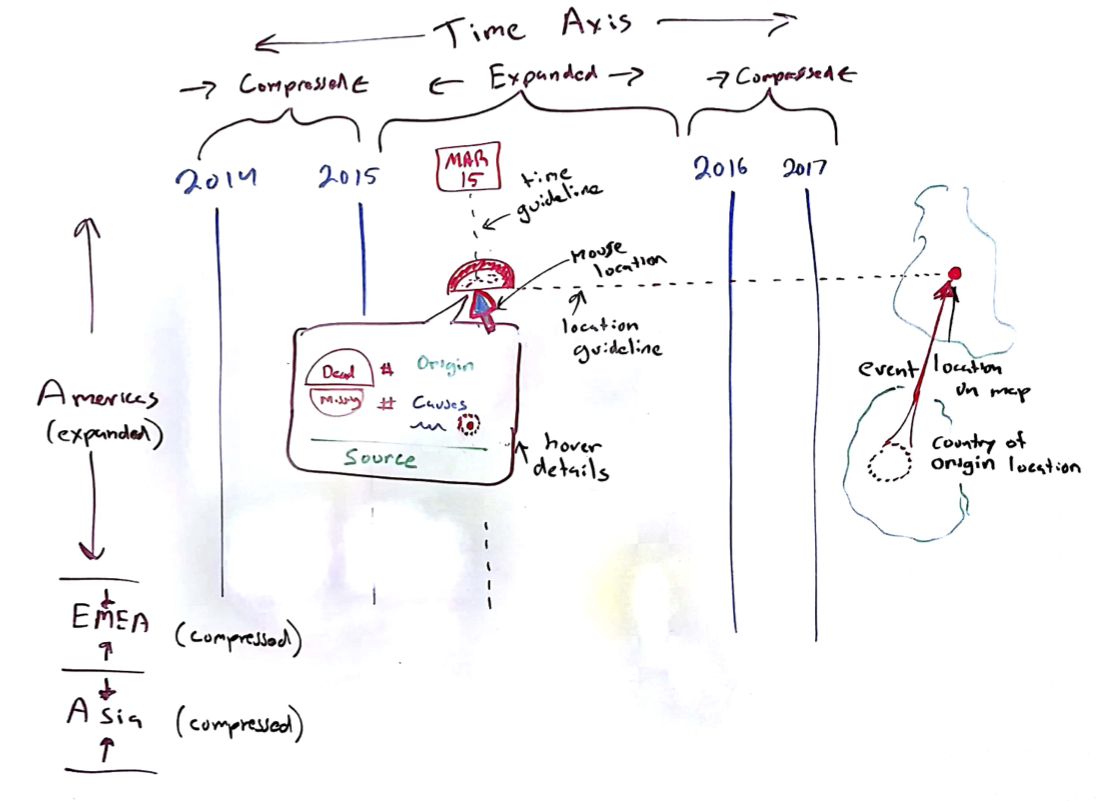 Time Axis
Compressed
Expanded
Compressed
2014
2015
MAR
15
2016
2017
time
guideline
mouse
location
location
guideline
Dead # Origin
Missing # Causes
Source
hover
details
event location
on map
Country of
Origin location
Americas
(expanded)
EMEA (compressed)
Asia (compressed)